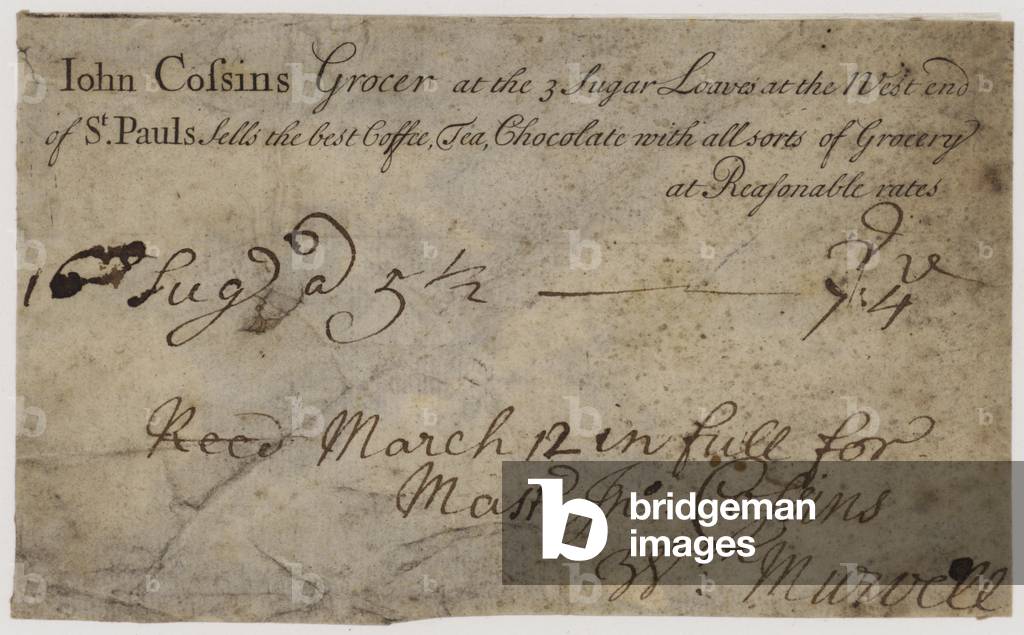 Iohn Coſsins Grocer at the 3 Sugar Loaves at the West end
of St. Pauls Sells the best Coffee, Tea, Chocolate with all sorts of Grocery
at Reaſonable rates
Sugr a 5 1/2 7:4
Recd March 12 in full for
Mastr Jno Coſsins
Wm Murvell
bridgeman
images